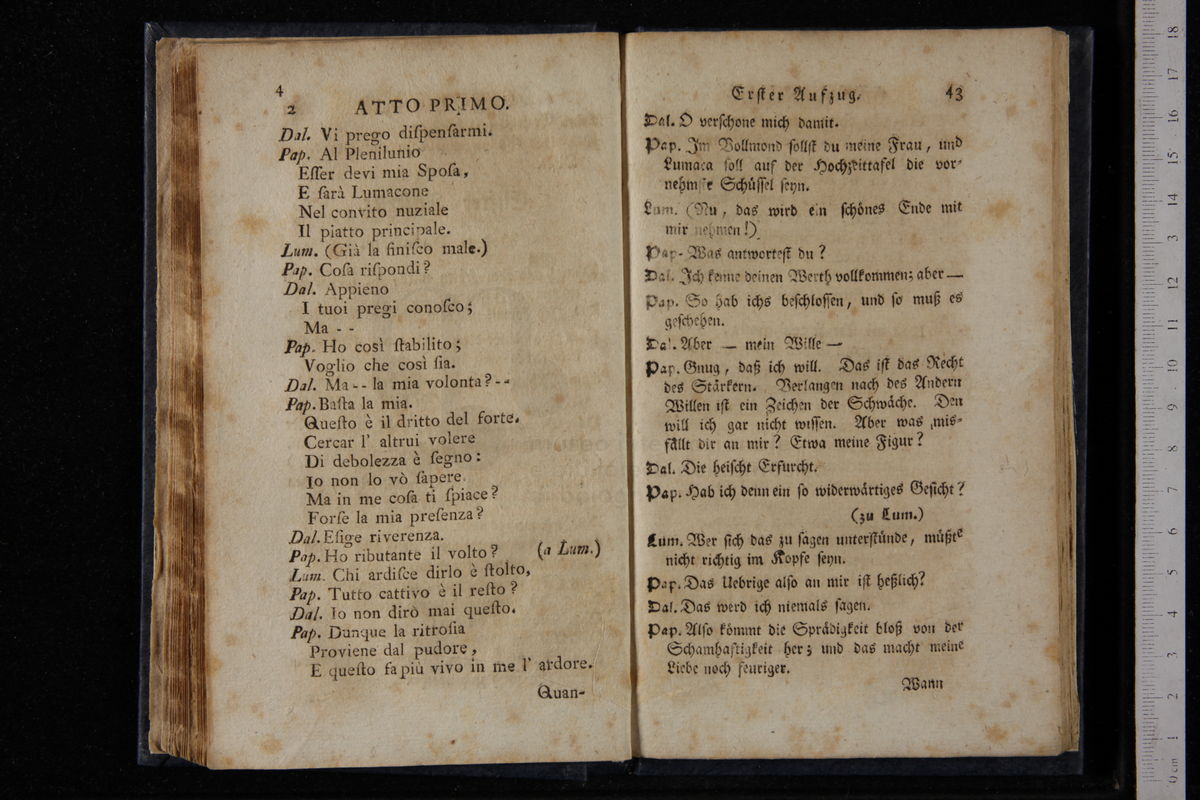 4
2 ATTO PRIMO.
Dal. Vi prego diſpenſarmi.
Pap. Al Plenilunio
Eſſer devi mia Spoſa,
E ſarà Lumacone
Nel convito nuziale
Il piatto principale.
Lum. (Già la finiſco male.)
Pap. Coſa riſpondi?
Dal. Appieno
I tuoi pregi conoſco;
Ma - -
Pap. Ho così ſtabilito;
Voglio che così ſia.
Dal. Ma - - la mia volonta? - -
Pap. Baſta la mia.
Queſto è il dritto del forte.
Cercar l' altrui volere
Di debolezza è ſegno:
Io non lo vò ſapere.
Ma in me coſa ti ſpiace?
Forſe la mia preſenza?
Dal. Eſige riverenza.
Pap. Ho ributante il volto? (a Lum.)
Lum. Chi ardiſce dirlo è ſtolto,
Pap. Tutto cattivo è il reſto?
Dal. Io non dirò mai queſto.
Pap. Dunque la ritroſia
Proviene dal pudore,
E queſto fa più vivo in me l' ardore.
Quan-
Erſter Aufzug. 43
Dal. O verſchone mich damit.
Pap. Im Vollmond ſollſt du meine Frau, und
Lumaca ſoll auf der Hochzeittafel die vor-
nehmſte Schüſſel ſeyn.
Lum. (Nu, das wird ein ſchönes Ende mit
mir nehmen!)
Pap. Was antworteſt du?
Dal. Ich kenne deinen Werth vollkommen; aber —
Pap. So hab ichs beſchloſſen, und ſo muß es
geſchehen.
Dal. Aber — mein Wille —
Pap. Gnug, daß ich will. Das iſt das Recht
des Stärkern. Verlangen nach des Andern
Willen iſt ein Zeichen der Schwäche. Den
will ich gar nicht wiſſen. Aber was mis-
fällt dir an mir? Etwa meine Figur?
Dal. Die heiſcht Erfurcht.
Pap. Hab ich denn ein ſo widerwärtiges Geſicht?
(zu Lum.)
Lum. Wer ſich das zu ſagen unterſtünde, müßte
nicht richtig im Kopfe ſeyn.
Pap. Das Uebrige alſo an mir iſt heßlich?
Dal. Das werd ich niemals ſagen.
Pap. Alſo kömmt die Sprädigkeit bloß von der
Schamhaftigkeit her; und das macht meine
Liebe noch feuriger.
Wann